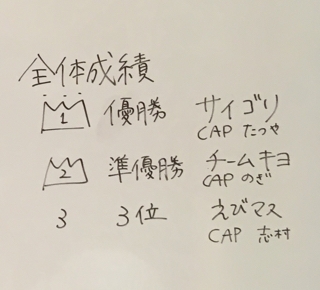 全体成績
1 優勝 サイゴリ
CAP たつや
2 準優勝 チームキヨ
CAP のぎ
3 3位 えびマス
CAP 志村